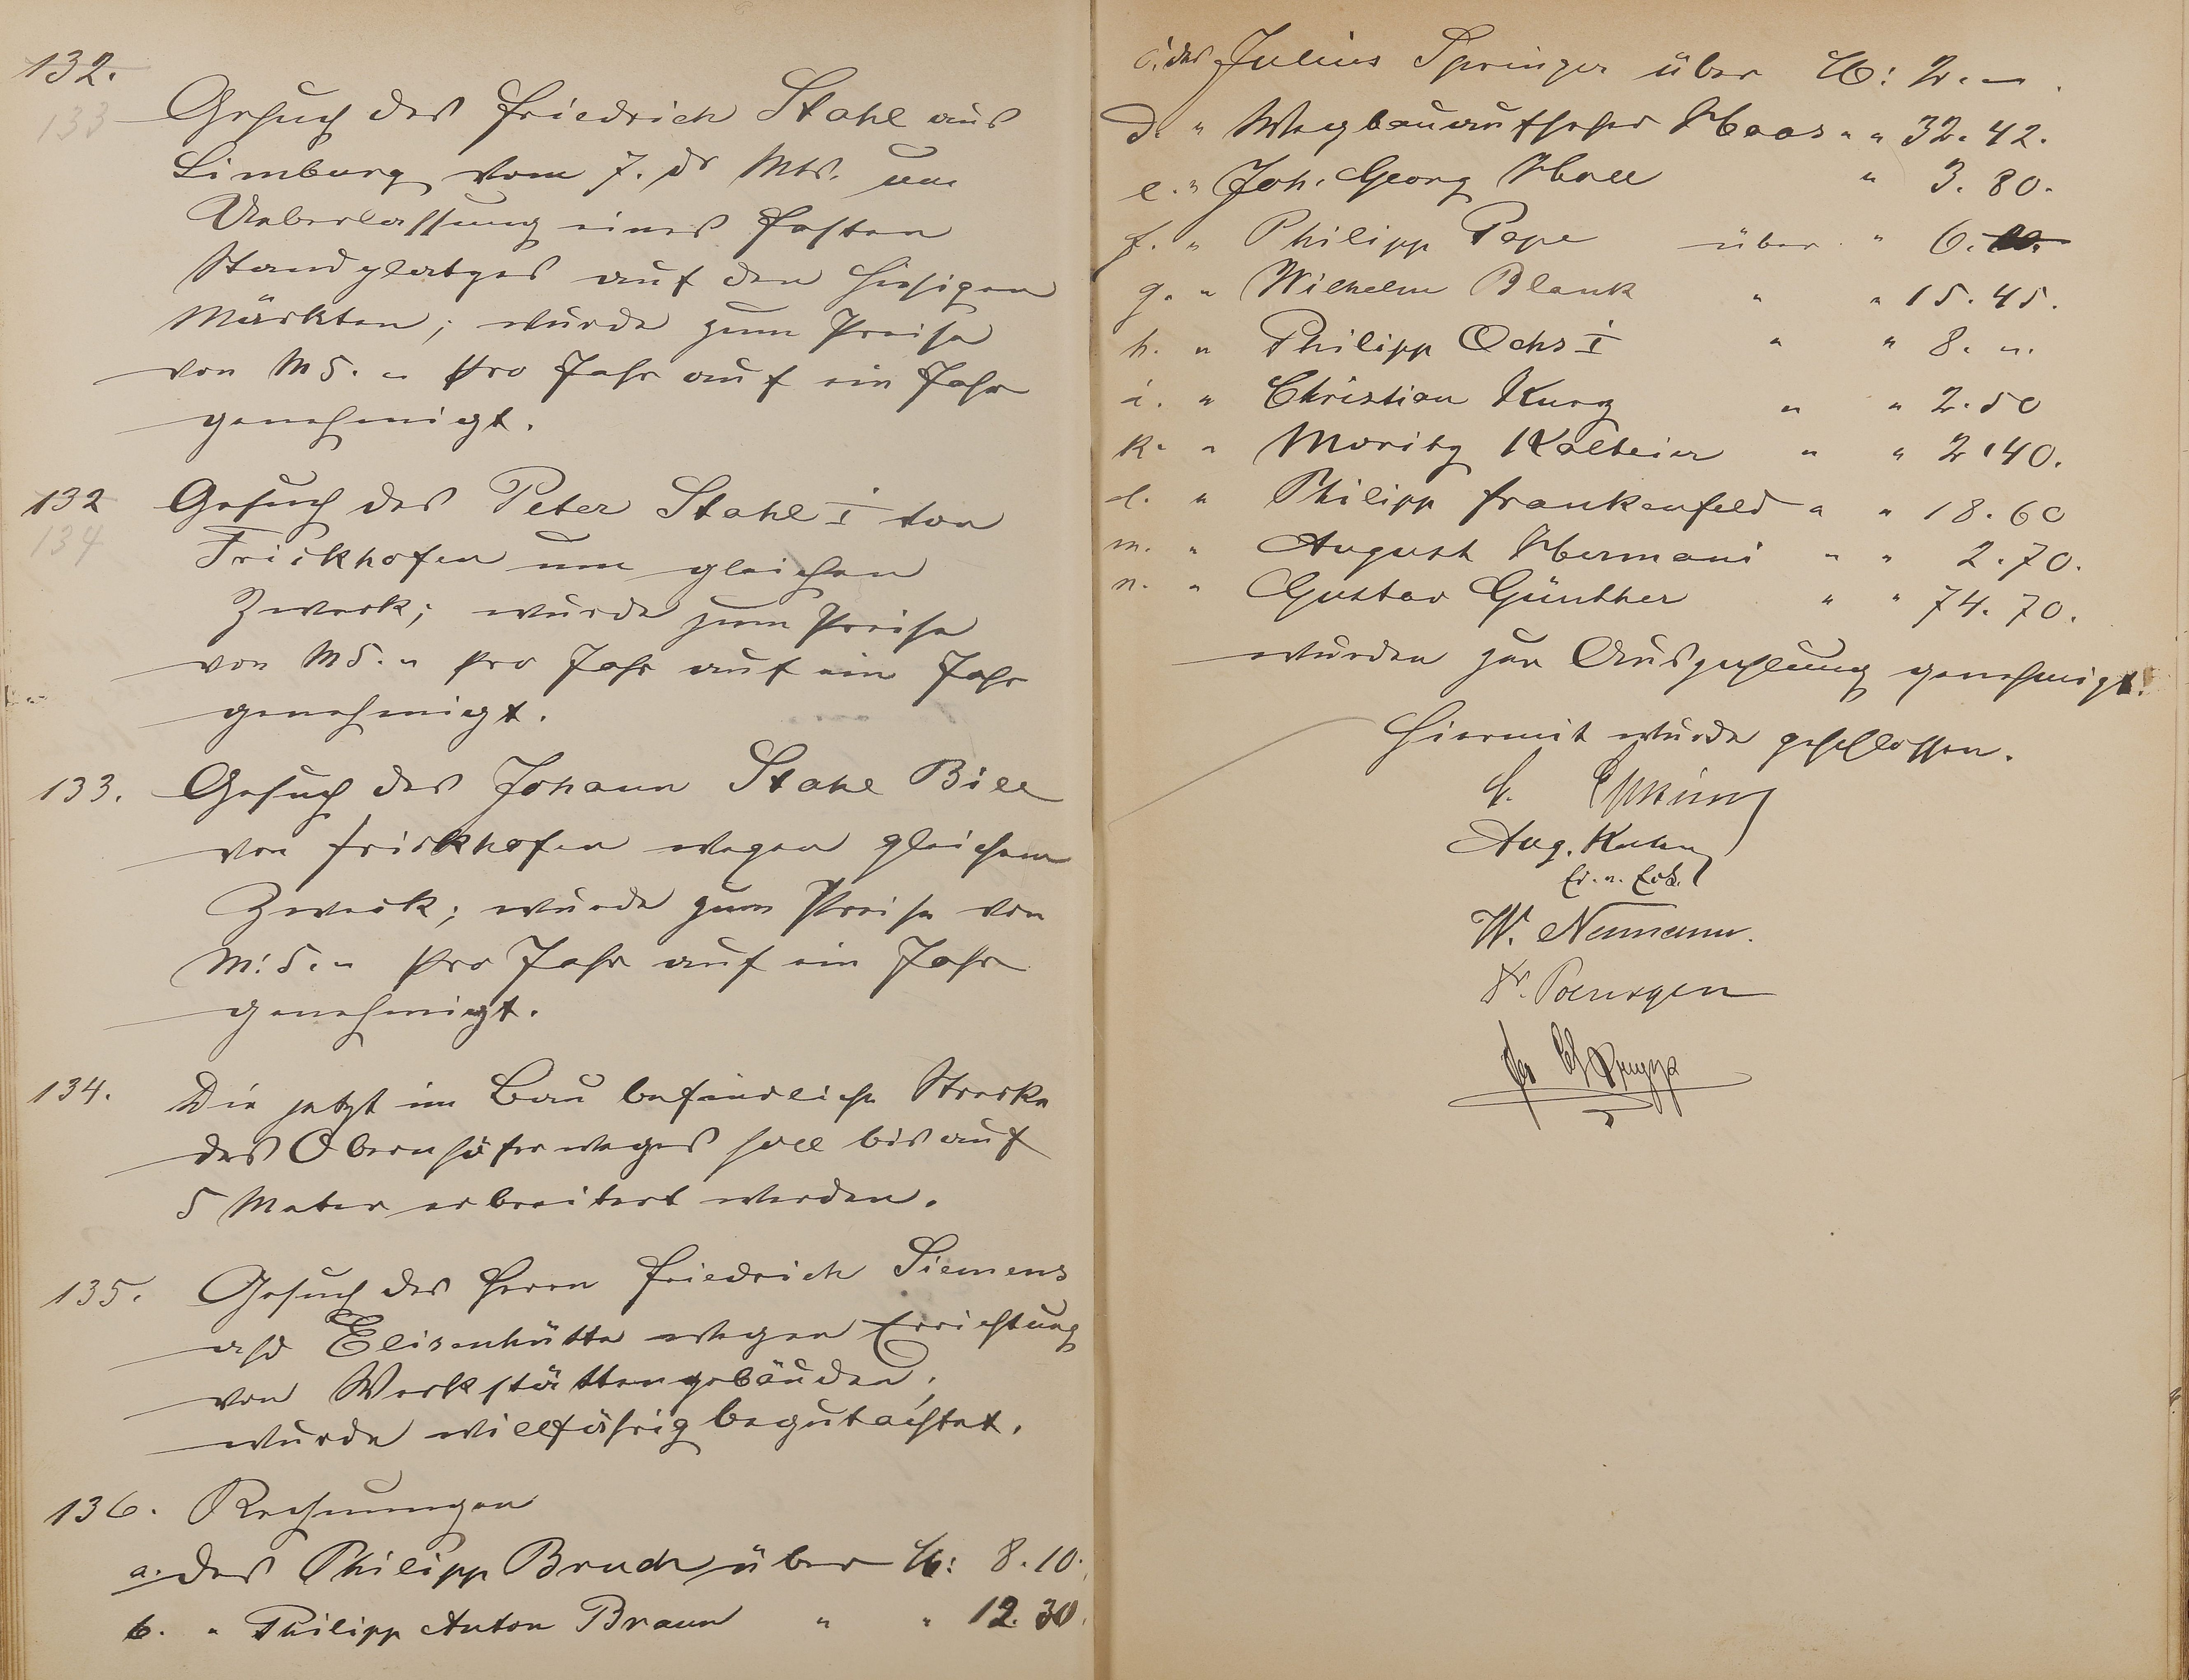 132.
133
Gesuch des Friedrich Stahl aus
Limburg vom 7. ds Mts. um
Ueberlassung eines festen
Standplatzes auf den hiesigen
Märkten; wurde zum Preise
von M 5. " pro Jahr auf ein Jahr
genehmigt.
132
134
Gesuch des Peter Stahl I von
Frickhofen um gleichen
Zweck; wurde zum Preise
von M 5. " pro Jahr auf ein Jahr
genehmigt.
133. Gesuch des Johann Stahl Bill
von Frickhofen wegen gleichem
Zweck; wurde zum Preise von
M: 5. " pro Jahr auf ein Jahr
genehmigt.
134. Die jetzt im Bau befindliche Strecke
des Obernhöferweges soll bis auf
5 Meter erbreitert werden.
135. Gesuch des Herrn Friedrich Siemens
auf Elisenhütte wegen Errichtung
von Werkstättengebäuden;
wurde willfährig begutachtet.
136. Rechnungen
a. des Philipp Bruch über M: 8.10.
b. " Philipp Anton Braun " " 12.30.
c. des Julius Springer über M: 2. —.
d. " Wegbauaufseher Haas " " 32.42.
e. " Joh. Georg Holl " 3.80.
f. " Philipp Pape über " 6.
g. " Wilhelm Blank " " 15.45.
h. " Philipp Ochs I " " 8. ".
i. " Christian Kurz " " 2.50
k. " Moritz Kalteier " " 2.40.
l. " Philipp Frankenfeld " " 18.60
m. " August Hermani " " 2.70.
n. " Gustav Günther " " 74.70.
wurden zur Auszahlung genehmigt.
Hiermit wurde geschlossen.
Aug.
W. Neumann.
Dr. Poensgen